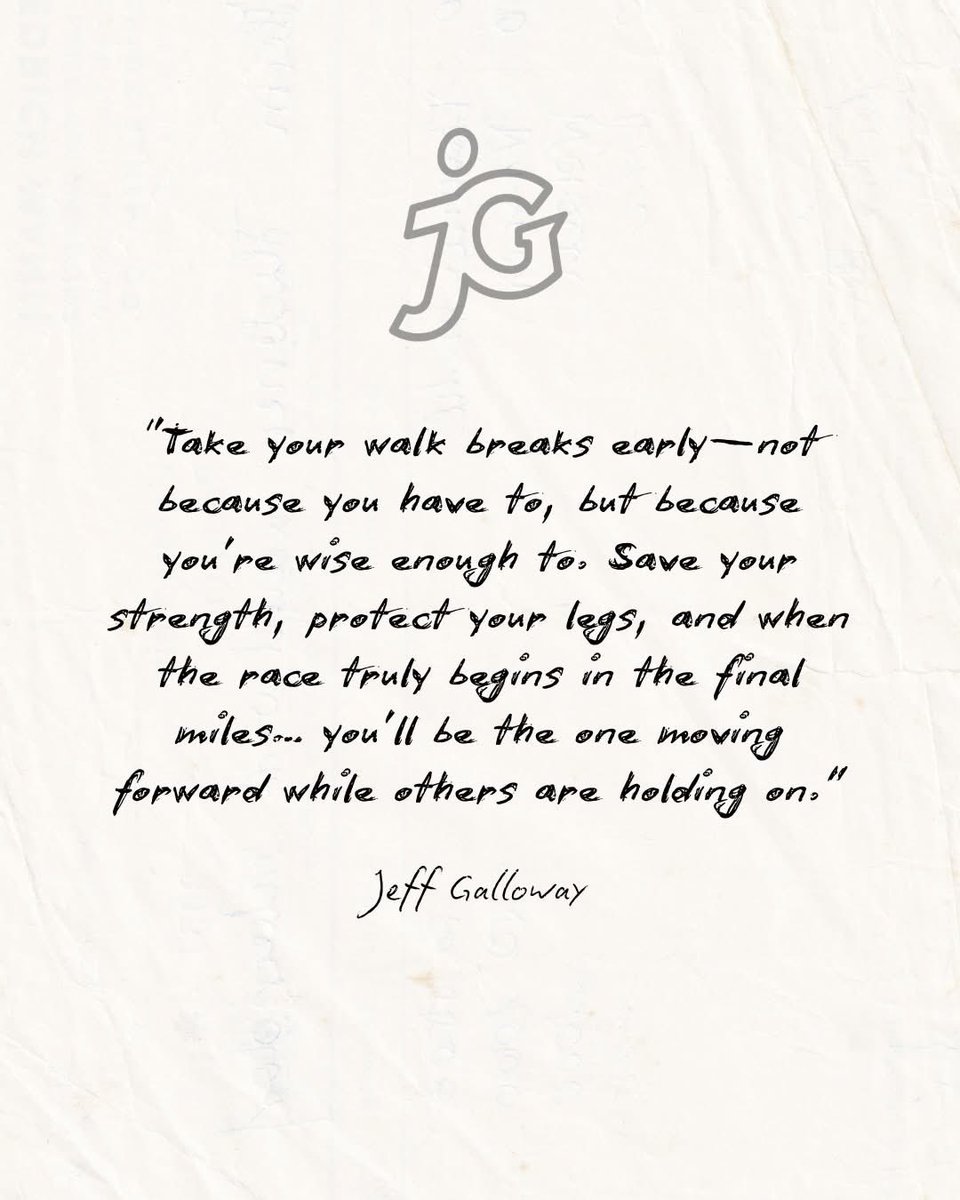 jG
"Take your walk breaks early—not
because you have to, but because
you're wise enough to. Save your
strength, protect your legs, and when
the race truly begins in the final
miles... you'll be the one moving
forward while others are holding on."
Jeff Galloway